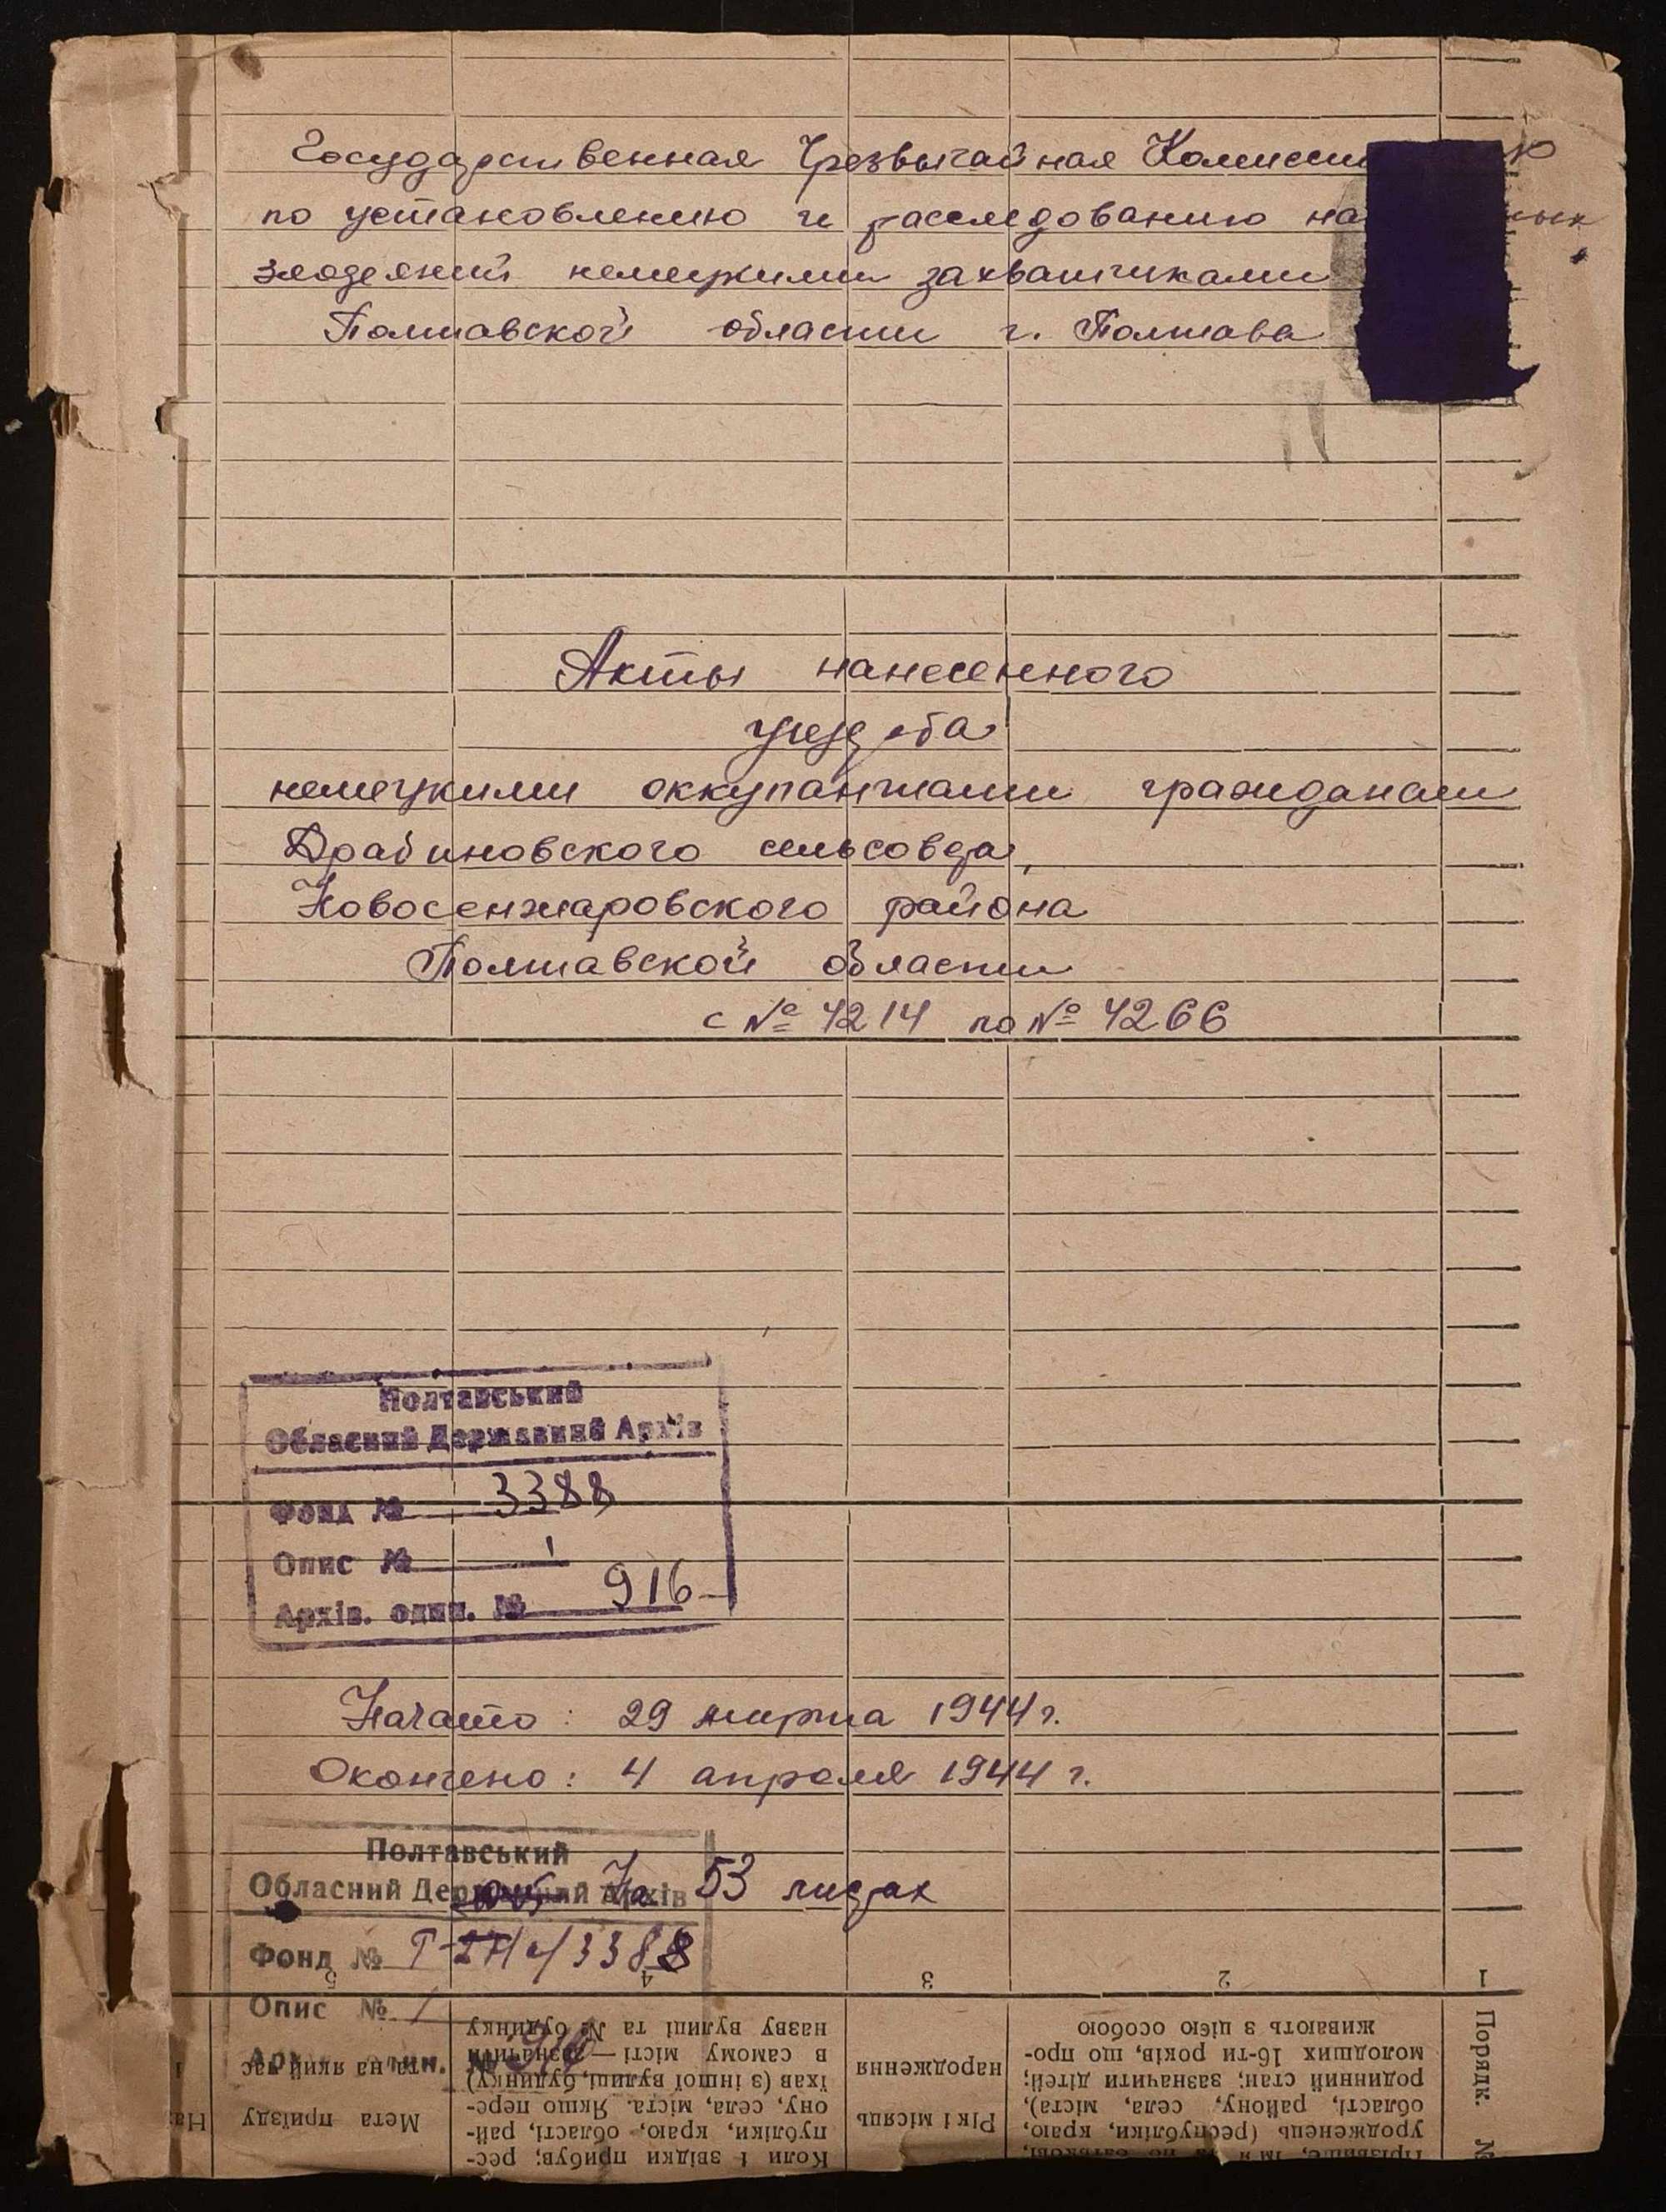 Государственная Чрезвычайная Комиссия
по установлению и расследованию
злодеяний немецкими захватчиками
Полтавской области г. Полтава
Акты нанесенного
ущерба
немецкими оккупантами гражданам
Драбиновского сельсовета,
Новосенжаровского района
Полтавской области
с № 4214 по № 4266
Полтавський
Обласний Державний Архів
Фонд № 3388
Опис № 1
Архів. один. № 916
Начато: 29 марта 1944 г.
Окончено: 4 апреля 1944 г.
На 53 листах
Полтавський
Обласний Державний Архів
Фонд № 3388
Опис № 1
5 4 3 2 1
Порядк. №
Прізвище, ім'я та по батькові,
уродженець (республіки, краю,
області, району, села, міста),
родинний стан; зазначити дітей;
молодших 16-ти років, що про-
живають з цією особою
Рік і місяць
народження
Коли і звідки прибув; рес-
публіки, краю, області, рай-
ону, села, міста. Якщо пере-
їхав (з іншої вулиці, будинку)
в самому місті — зазначити
назву вулиці та № будинку
Мета приїзду
та на який час